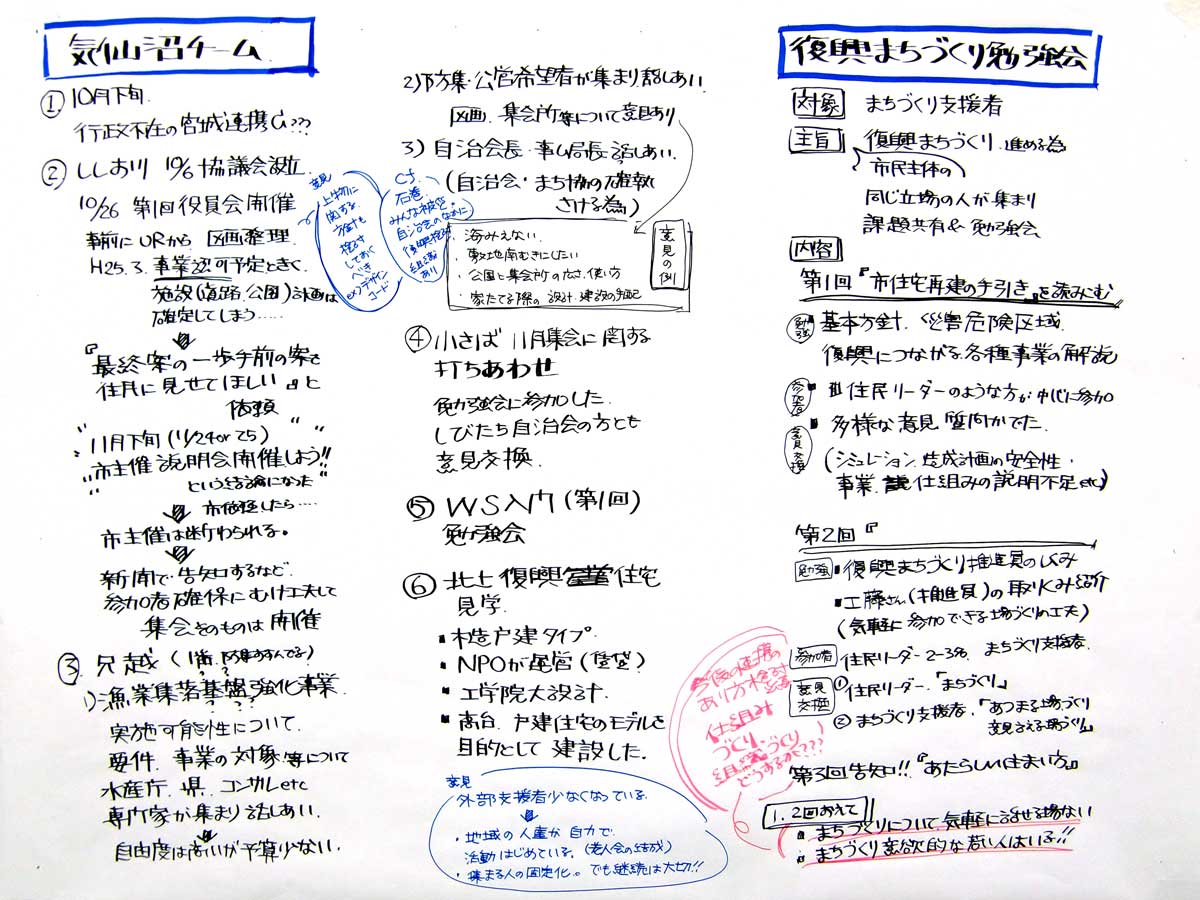 気仙沼チーム
① 10月下旬.
行政不在の宮城連携G???
② ししおり 10/6 協議会設立.
10/26 第1回役員会開催
事前にURから 区画整理.
H25.3. 事業認可予定ときく.
施設(道路.公園)計画は
確定してしまう……
『最終案の一歩手前の案を
住民に見せてほしい』と
依頼
"11月下旬(11/24or25)
市主催説明会開催しよう!!
という結論になった"
市確認したら….
市主催は断わられる。
新聞で告知するなど.
参加者確保にむけ工夫して
集会そのものは開催
③ 只越
1)漁業集落基盤強化事業.
???
実施可能性について.
要件.事業の対象.等について
水産庁.県.コンサルetc
専門家が集まり話しあい.
自由度は高いが予算少ない.
2)防集・公営希望者が集まり話しあい.
区画.集会所等について意見あり
3) 自治会長・事ム局長話しあい.
(自治会・まち協の確執
さける為)
意見
上物に
関する
方針も
検討
しておく
べき
ex)デザイン
コード
cf.
石巻.
みんな被災.
自治会のために
復興検討
組織
あり
意見の例
・海みえない.
・敷地南むきにしたい
・公園と集会所の広さ.使い方
・家たてる際の設計.建設の手配
④ 小さば 11月集会に関する
打ちあわせ
勉強会に参加した.
しびたち自治会の方とも
意見交換.
⑤ WS入門(第1回)
勉強会
⑥ 北上 復興住宅
見学.
・木造戸建タイプ.
・NPOが運営(賃貸)
・工学院大設計.
・高台.戸建住宅のモデルを
目的として建設した.
意見
外部支援者少なくなっている.
・地域の人達が自力で.
活動はじめている.(老人会の結成)
・集まる人の固定化.。でも継続は大切!!
復興まちづくり勉強会
対象 まちづくり支援者
主旨 復興まちづくり.進める為
市民主体の
同じ立場の人が集まり
課題共有&勉強会
内容
第1回『市住宅再建の手引き』を読みこむ
勉強 基本方針.災害危険区域.
復興につながる各種事業の解説
参加者 ・住民リーダーのような方が中心に参加
意見交換 ・多様な意見質問がでた.
(シミュレーション.造成計画の安全性・
事業.仕組みの説明不足etc)
第2回『
勉強 ・復興まちづくり推進員のしくみ
・工藤さん(推進員)の取りくみ紹介
(気軽に参加できる場づくりの工夫)
参加者 住民リーダー2-3名. まちづくり支援者.
意見交換 ①住民リーダー.「まちづくり」
②まちづくり支援者.「あつまる場づくり
意見言える場づくり」
今後の連携の
あり方検討
必要
仕組み
づくり.
組織づくり
どうするか???
第3回告知!!『あたらしい住まい方』
1.2回おえて
・まちづくりについて気軽に話せる場ない
・まちづくり意欲的な若い人はいる!!